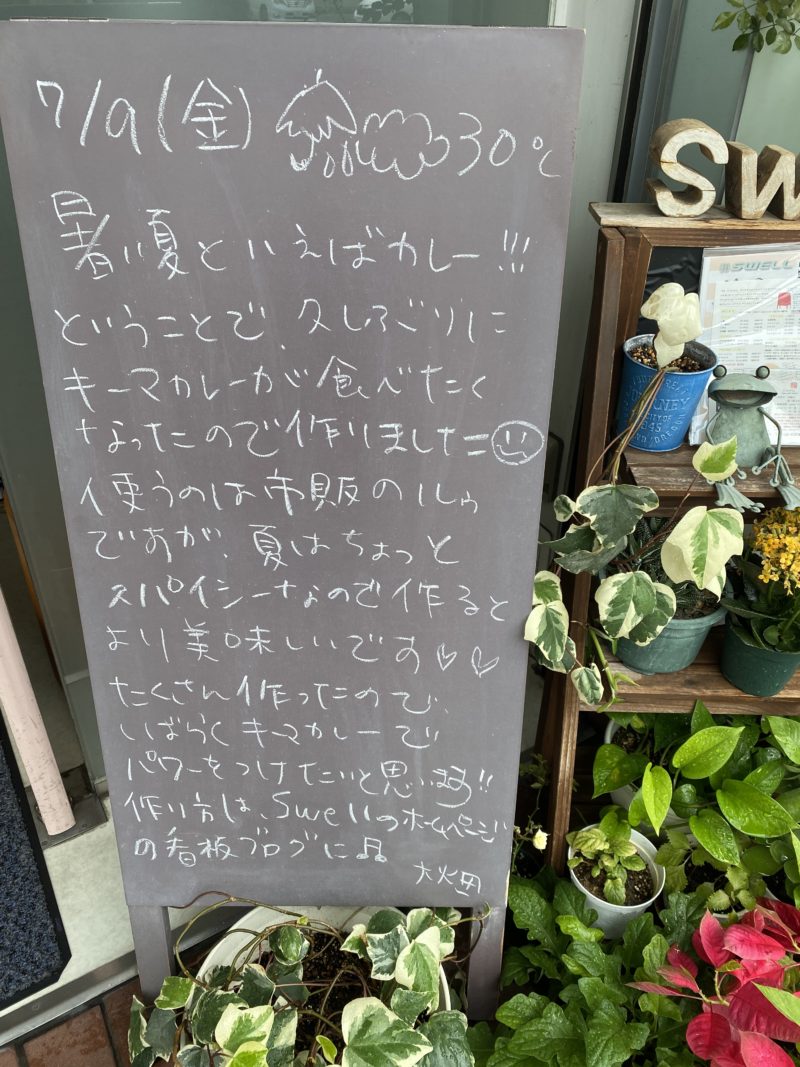 7/9(金) 30℃
暑い夏といえばカレー!!!
ということで、久しぶりに
キーマカレーが食べたく
なったので作りました=
使うのは市販のルゥ
ですが、夏はちょっと
スパイシーなので作ると
より美味しいです♡♡
たくさん作ったので、
しばらくキーマカレーで
パワーをつけたいと思います!!
作り方は、Swellのホームページ
の看板ブログに♫
大畑
SW
SWELL
JOURNEY
CITY OF